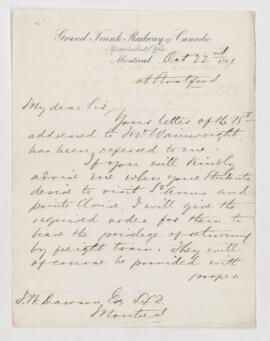 Grand Trunk Railway of Canada
Superintendent's Office
Montreal Oct 22nd
at Stratford
My dear Sir
Your letter of the 15th
addressed to Mr Wainwright
has been referred to me.
If you will kindly
advise me when your students
desire to visit St Annes and
pointe Claire, I will give the
required order for them to
have the privilege of returning
by freight train. They will
of course be provided with
proper
J. W. Dawson, Esq LLD.
Montreal